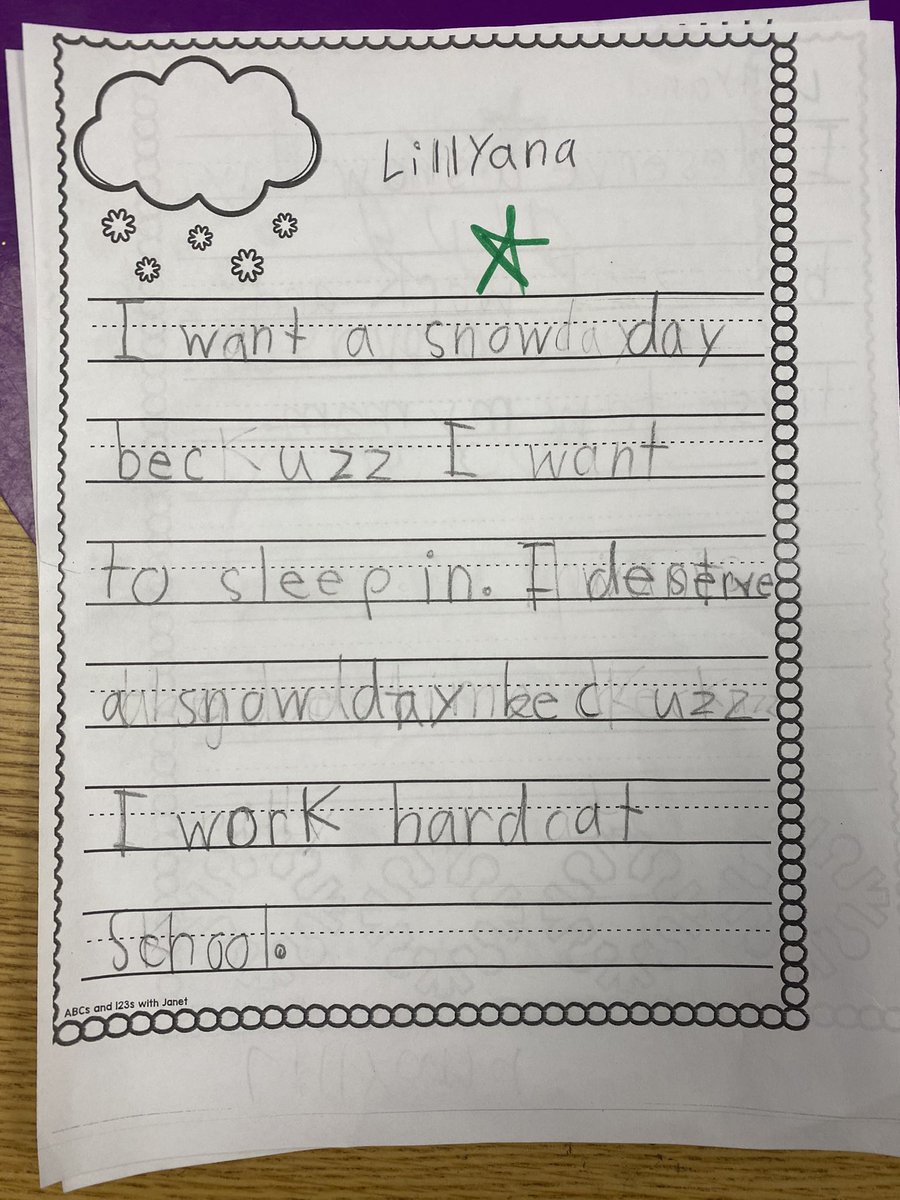 LillYana
I want a snow day
beckuzz I want
to sleep in. I deserve
a snow day beckuzz
I work hard at
School.
ABCs and 123s with Janet